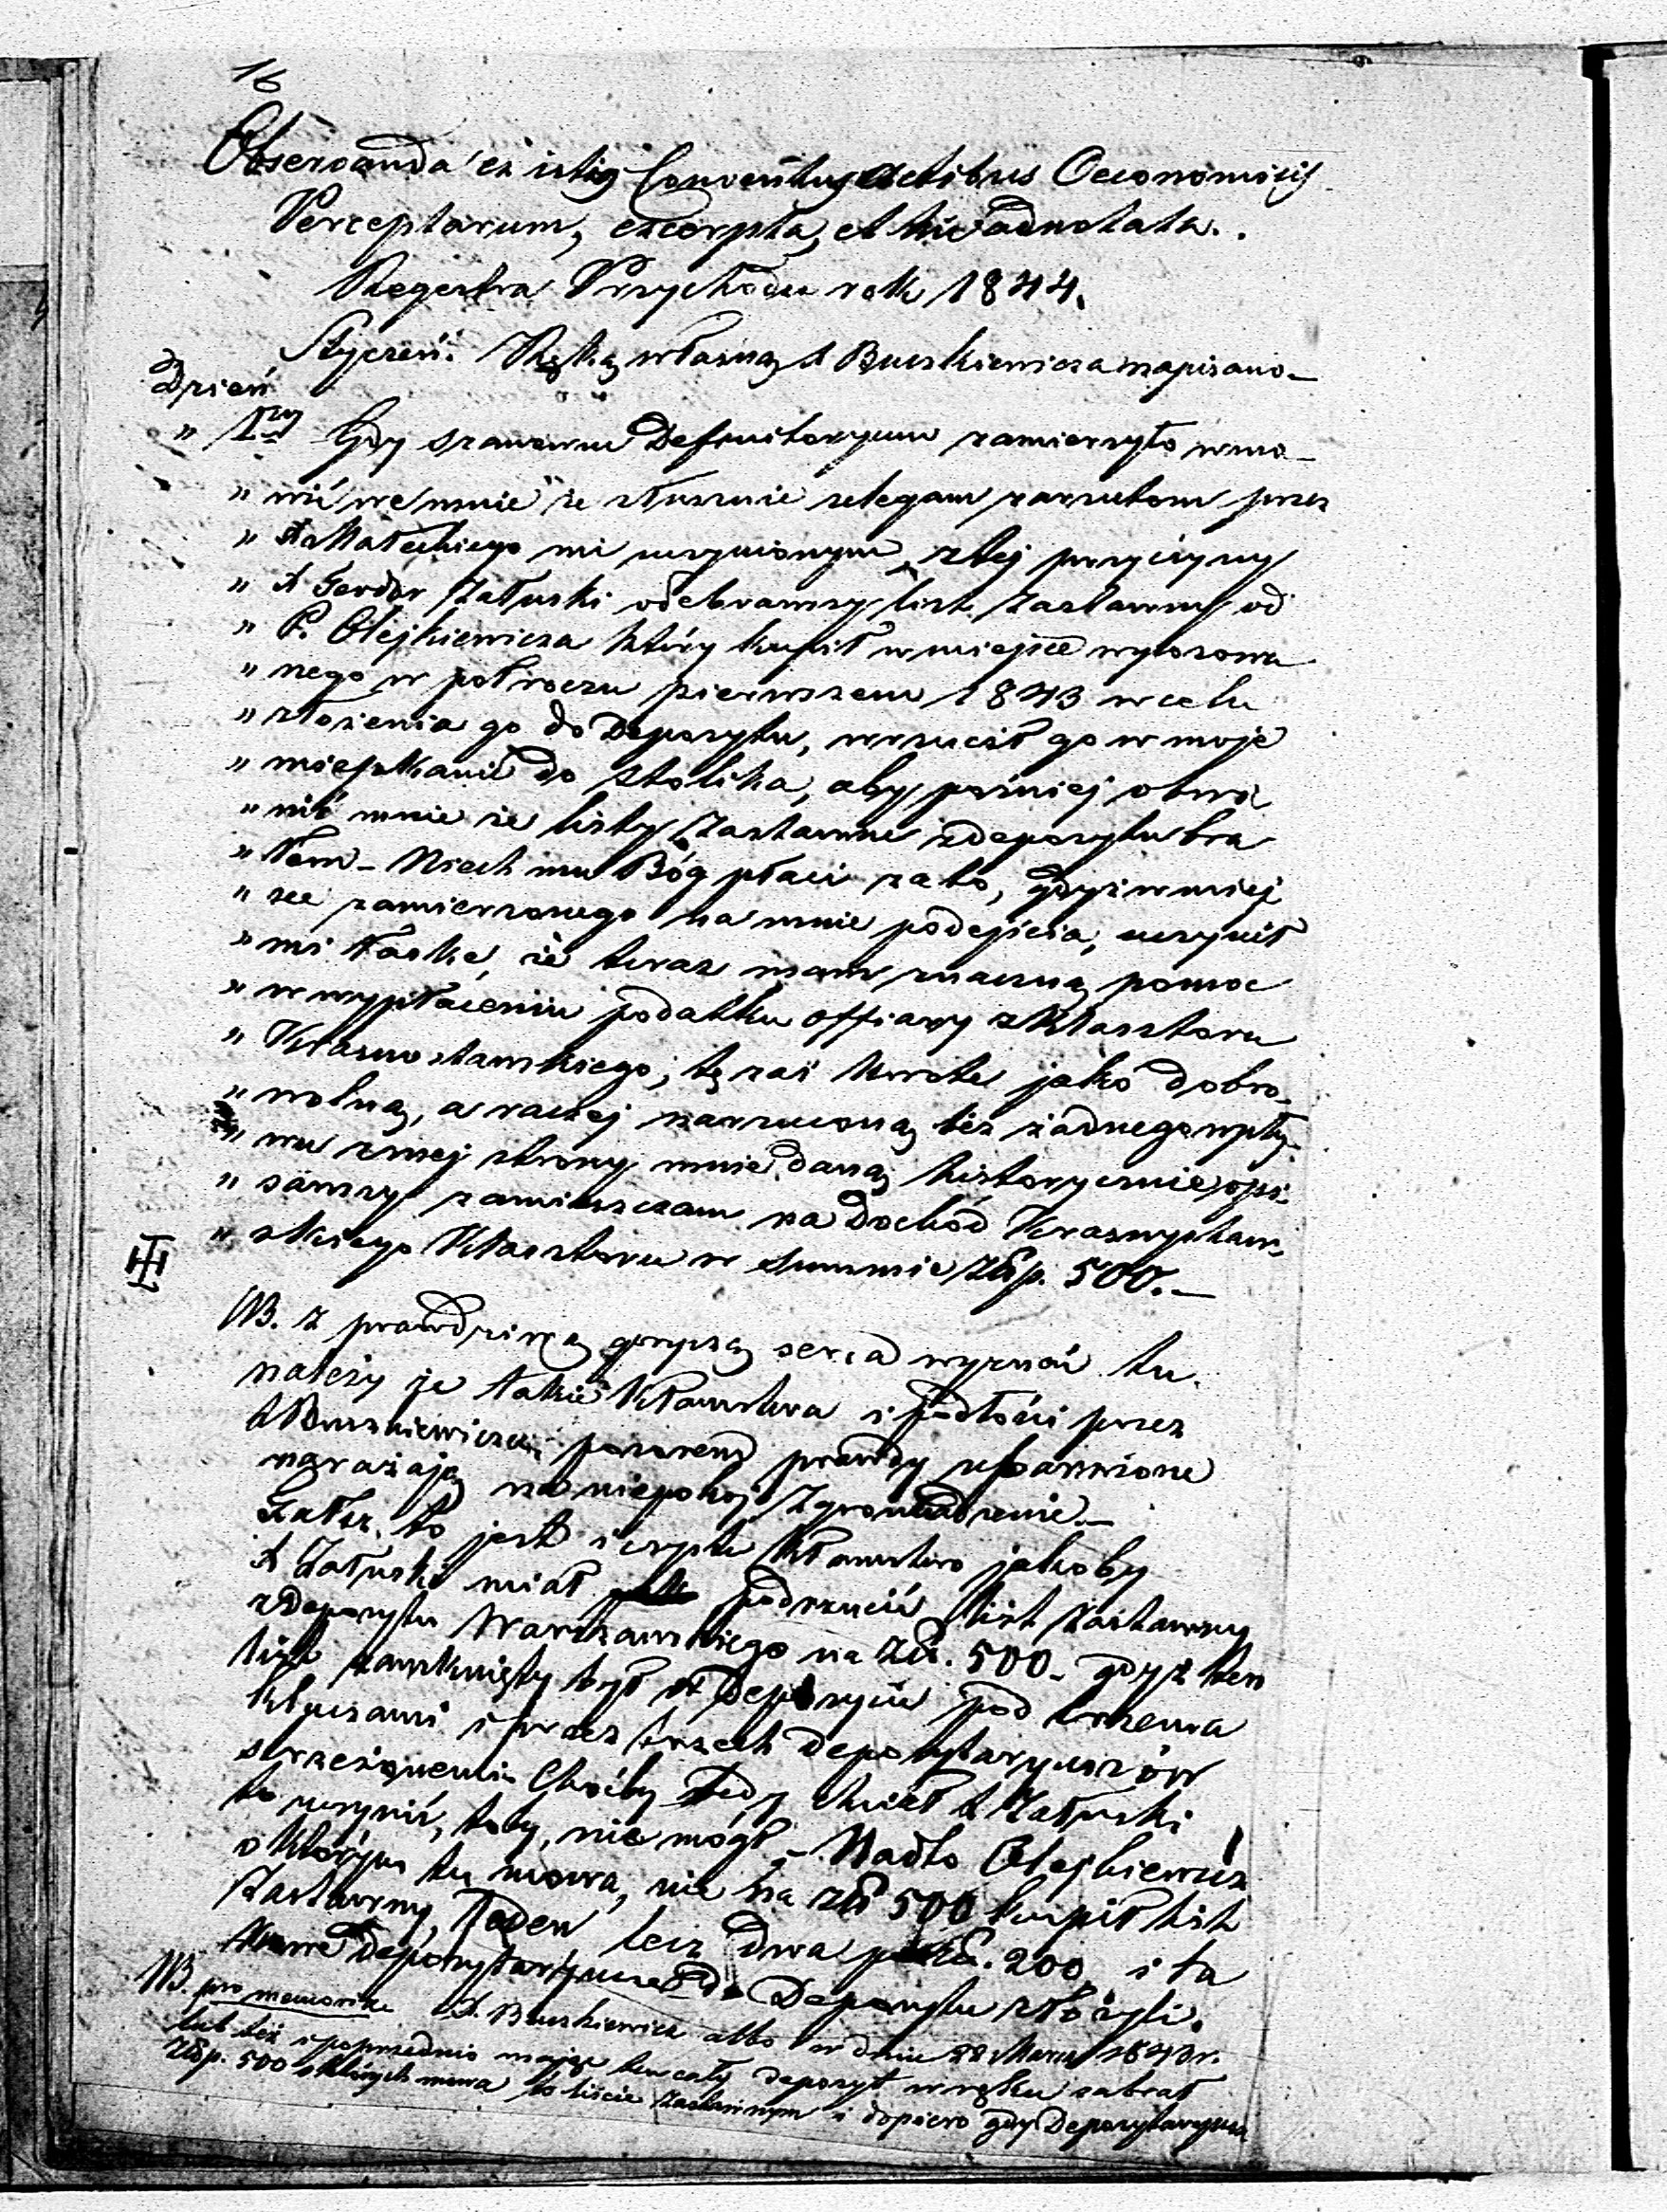 16
Observanda ex istis Conventus actibus Oeconomicis
Perceptarum, excerpta, et hic adnotata.
Regestra Przychodu rok 1844.
Styczeń. Ręką własną X Buszkiewicza napisano_
Dzień
" 1szy Gdy szanowne Definitoryum zamierzyło wmó_
" wić we mnie że słusznie ulegam zarzutom przez
" X Małeckiego mi uczynionym, z tej przyczyny
" X Ferdyn Załuski odebrawszy list Zastawny od
" P. Olejkiewicza który kupił w miejsce wylosowa
" nego w półroczu pierwszem 1843 w celu
" złożenia go do Depozytu, wrzucił go w moje
" mieszkanie do stolika, aby poźniej obwi
" nić mnie że listy Zastawne z depozytu bra
" łem_ Niech mu Bóg płaci za to, gdyż w miej
" sce zamierzonego na mnie podejścia, uczynił
" mi łaskę, że teraz mam znaczną pomoc
" w wypłaceniu podatku offiary z Klasztoru
" Krasnostawskiego; tę zaś kwotę jako dobro_
" wolną, a raczej narzuconą bez żadnego wpły_
" wu z mej strony mnie daną historycznie opi_
" sawszy zamieszczam na dochód Krasnystaw_
" skiego Klasztoru w summie Złp. 500._
NB. Z prawdziwą goryczą serca wyznać tu
należy że takie kłamstwa i podłości przez
X Buszkiewicza pozorem prawdy ubarwione
narażają na niepokoj Zgromadzenie._
Fałsz to jest i czyste kłamstwo jakoby
X Załuski miał podrzucić list zastawny
z Depozytu Warszawskiego na Zł. 500_ gdyż ten
list zamknięty był w Depozycie pod trzema
kluczami i przez trzech depozytaryuszów
strzeżonemi Choćby tedy chciał X Załuski
to uczynić, toby nie mógł_ Nadto Olejkiewicz
o którym tu mowa, nie na zł 500 kupił list
Zastawny, Jeden lecz dwa po zł. 200 i ta
depozytaryusze do Depozytu złożyli.
NB. pro memoria X. Buszkiewicz albo w dniu 22 Marca 1843 r.
lub też i poprzednio mając ten cały depozyt w ręku zabrał
Złp. 500 o których mowa w liście Zastawnym i dopiero gdy Depozytaryusz